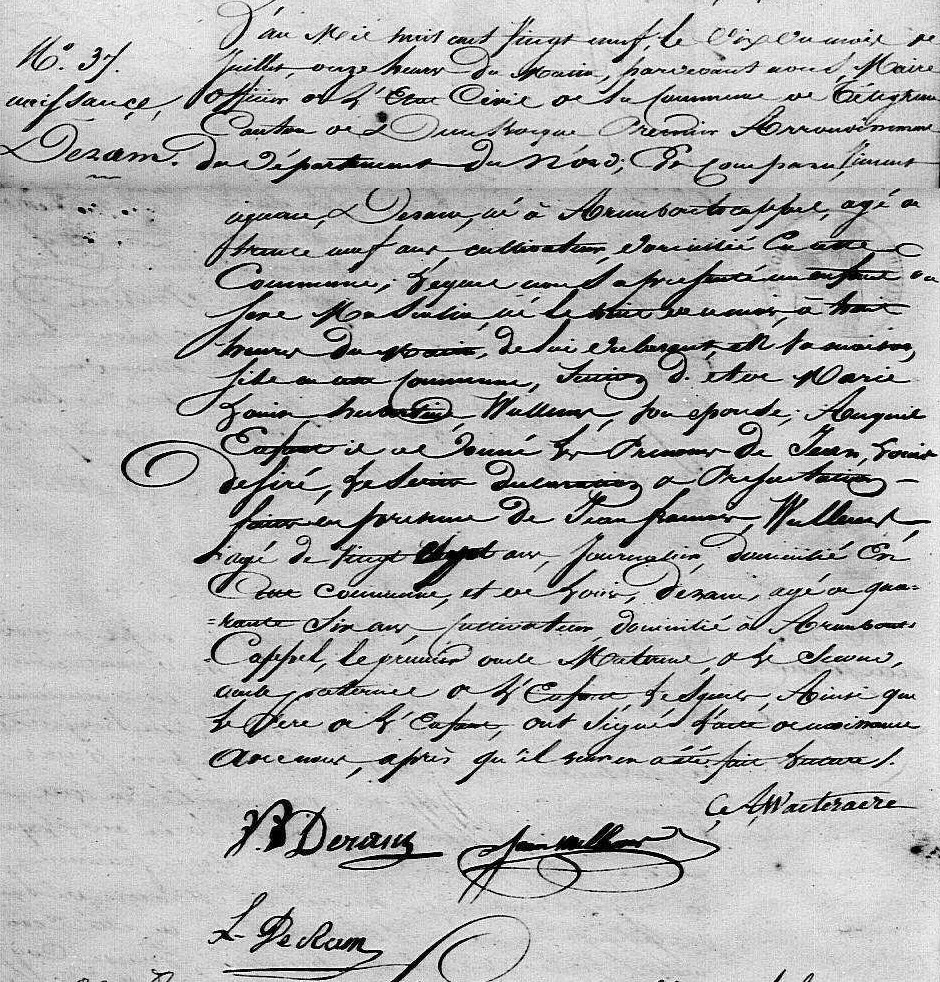 N.° 37.
naissance,
Dezam.
L'an Mil huit cent Vingt neuf, le dix du mois de
Juillet, onze heures du Matin, pardevant nous, Maire
Officier de L'Etat Civil de la Commune de Téteghem
Canton de Dunkerque Premier Arrondissement
du Département du Nord, Est comparu, Vincent
Dezam, né à Armboutscappel, agé de
trente neuf ans, cultivateur, domicilié En cette
Commune, Lequel nous a presenté un enfant du
sexe Masculin, né le huit du mois, à huit
heures du matin, de lui déclarant, Et sa maison,
site en cette Commune, Section d. et de Marie
Louise Wullens, son epouse, Auquel
Enfant il a donné Les Prenoms de Jean, Louis
desiré, Les dites declaration & Presentation
faites en presence de Jean francois, Wullens
agé de Vingt sept ans, Journalier, domicilié En
cette commune, et de Louis, dezam, agé de qua=
=rante Six ans, Cultivateur, domicilié à Armbouts
=Cappel, le premier oncle Maternel, & Le Second,
oncle paternel de L'Enfant, Lesquels, Ainsi que
Le Père de L'Enfant, ont Signé L'acte de naissance
Avec nous, après qu'il leur en a été fait Lecture.
V. Dezam
L. Dezam